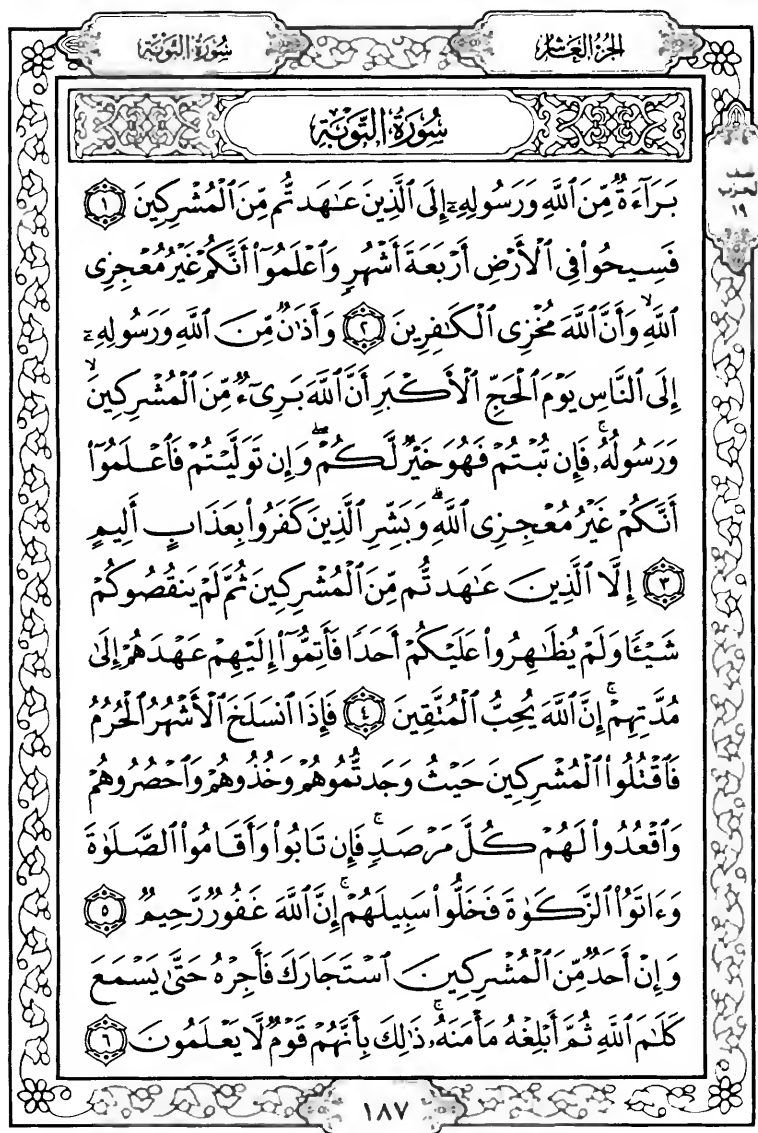 الجزء العاشر
سورة التوبة
نصف
الحزب
١٩
سُورَةُ التَّوْبَةِ
بَرَآءَةٌ مِّنَ ٱللَّهِ وَرَسُولِهِۦٓ إِلَى ٱلَّذِينَ عَٰهَدتُّم مِّنَ ٱلْمُشْرِكِينَ ١
فَسِيحُوا۟ فِى ٱلْأَرْضِ أَرْبَعَةَ أَشْهُرٍ وَٱعْلَمُوٓا۟ أَنَّكُمْ غَيْرُ مُعْجِزِى
ٱللَّهِ ۙ وَأَنَّ ٱللَّهَ مُخْزِى ٱلْكَٰفِرِينَ ٢ وَأَذَٰنٌ مِّنَ ٱللَّهِ وَرَسُولِهِۦٓ
إِلَى ٱلنَّاسِ يَوْمَ ٱلْحَجِّ ٱلْأَكْبَرِ أَنَّ ٱللَّهَ بَرِىٓءٌ مِّنَ ٱلْمُشْرِكِينَ ۙ
وَرَسُولُهُۥ ۚ فَإِن تُبْتُمْ فَهُوَ خَيْرٌ لَّكُمْ ۖ وَإِن تَوَلَّيْتُمْ فَٱعْلَمُوٓا۟
أَنَّكُمْ غَيْرُ مُعْجِزِى ٱللَّهِ ۗ وَبَشِّرِ ٱلَّذِينَ كَفَرُوا۟ بِعَذَابٍ أَلِيمٍ
٣ إِلَّا ٱلَّذِينَ عَٰهَدتُّم مِّنَ ٱلْمُشْرِكِينَ ثُمَّ لَمْ يَنقُصُوكُمْ
شَيْـًٔا وَلَمْ يُظَٰهِرُوا۟ عَلَيْكُمْ أَحَدًا فَأَتِمُّوٓا۟ إِلَيْهِمْ عَهْدَهُمْ إِلَىٰ
مُدَّتِهِمْ ۚ إِنَّ ٱللَّهَ يُحِبُّ ٱلْمُتَّقِينَ ٤ فَإِذَا ٱنسَلَخَ ٱلْأَشْهُرُ ٱلْحُرُمُ
فَٱقْتُلُوا۟ ٱلْمُشْرِكِينَ حَيْثُ وَجَدتُّمُوهُمْ وَخُذُوهُمْ وَٱحْصُرُوهُمْ
وَٱقْعُدُوا۟ لَهُمْ كُلَّ مَرْصَدٍ ۚ فَإِن تَابُوا۟ وَأَقَامُوا۟ ٱلصَّلَوٰةَ
وَءَاتَوُا۟ ٱلزَّكَوٰةَ فَخَلُّوا۟ سَبِيلَهُمْ ۚ إِنَّ ٱللَّهَ غَفُورٌ رَّحِيمٌ ٥
وَإِنْ أَحَدٌ مِّنَ ٱلْمُشْرِكِينَ ٱسْتَجَارَكَ فَأَجِرْهُ حَتَّىٰ يَسْمَعَ
كَلَٰمَ ٱللَّهِ ثُمَّ أَبْلِغْهُ مَأْمَنَهُۥ ۚ ذَٰلِكَ بِأَنَّهُمْ قَوْمٌ لَّا يَعْلَمُونَ ٦
١٨٧